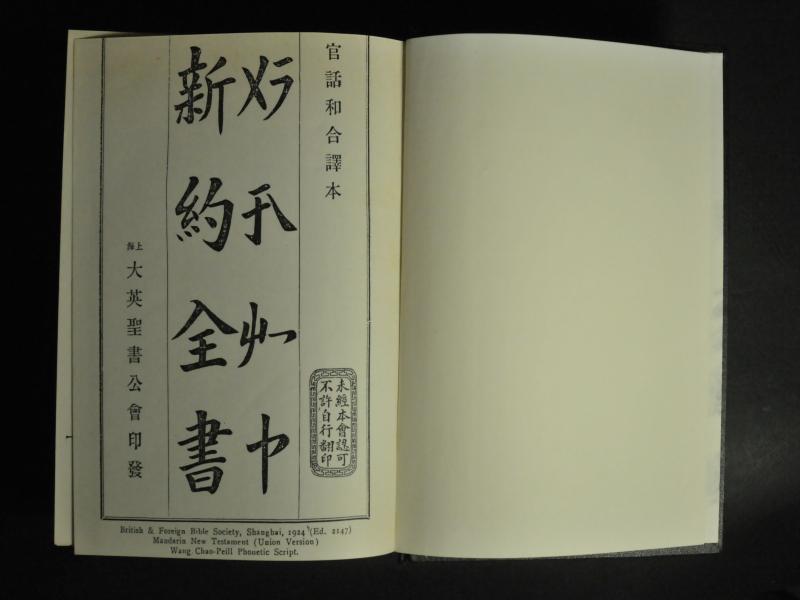 官話和合譯本
新約全書
上海
大英聖書公會印發
未經本會認可
不許自行翻印
British & Foreign Bible Society, Shanghai, 1924 (Ed. 2147)
Mandarin New Testament (Union Version)
Wang Chao-Peill Phonetic Script.